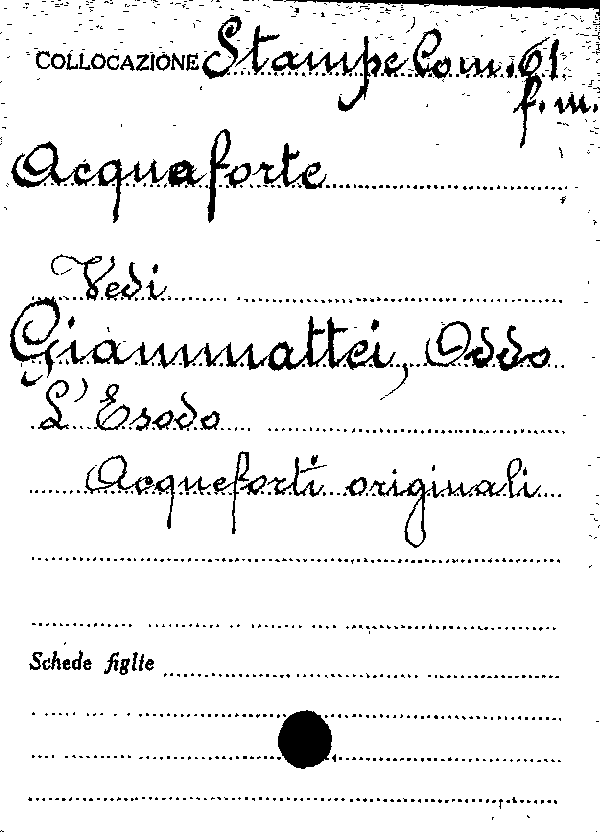 COLLOCAZIONE Stampe Com. 61
f. m.
Acquaforte
Vedi
Giammattei, Oddo
L'Esodo
Acqueforti originali
Schede figlie